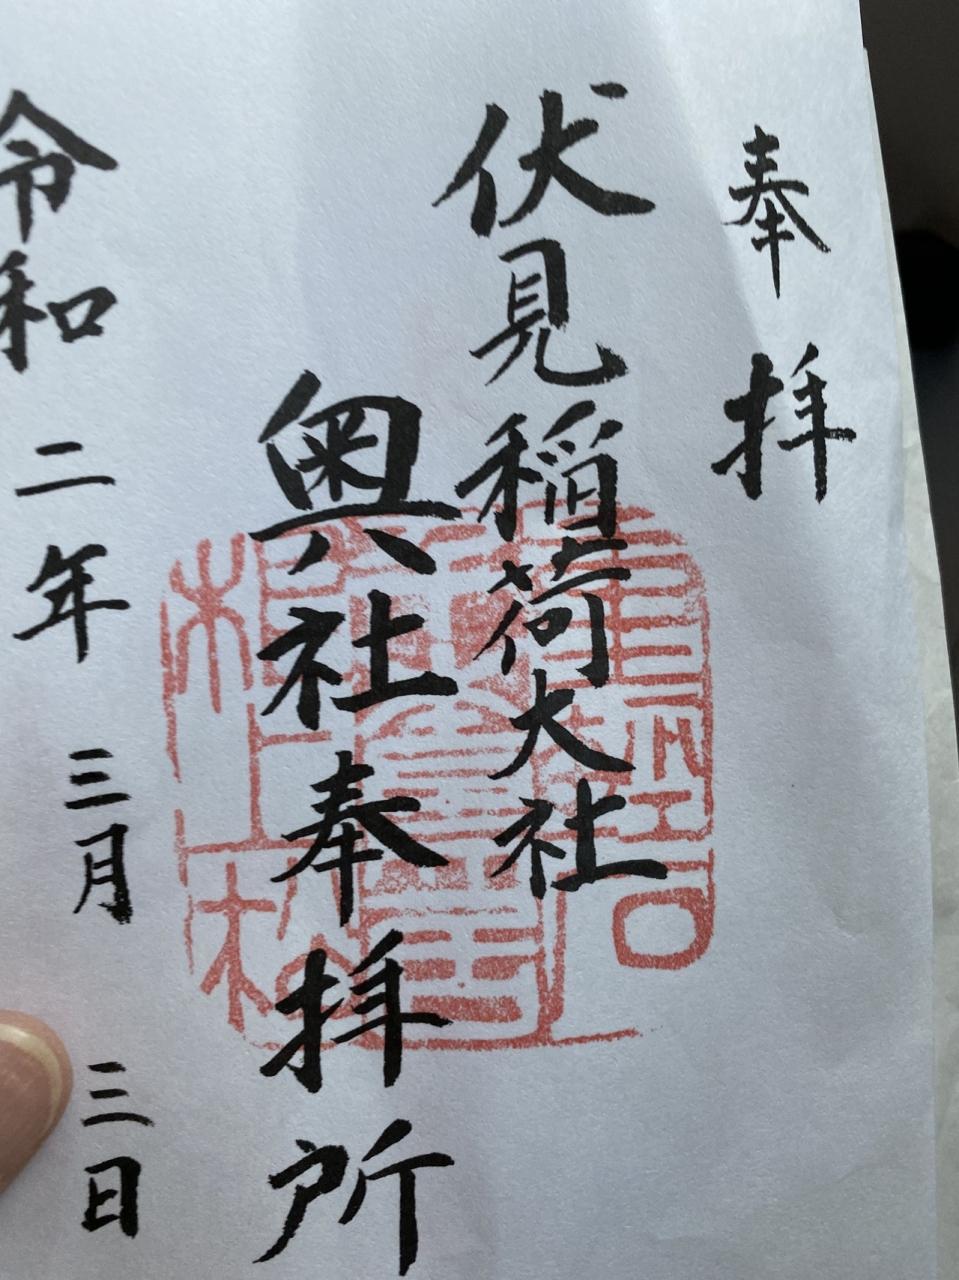 奉拝
伏見稲荷大社
奥社奉拝所
令和二年三月三日